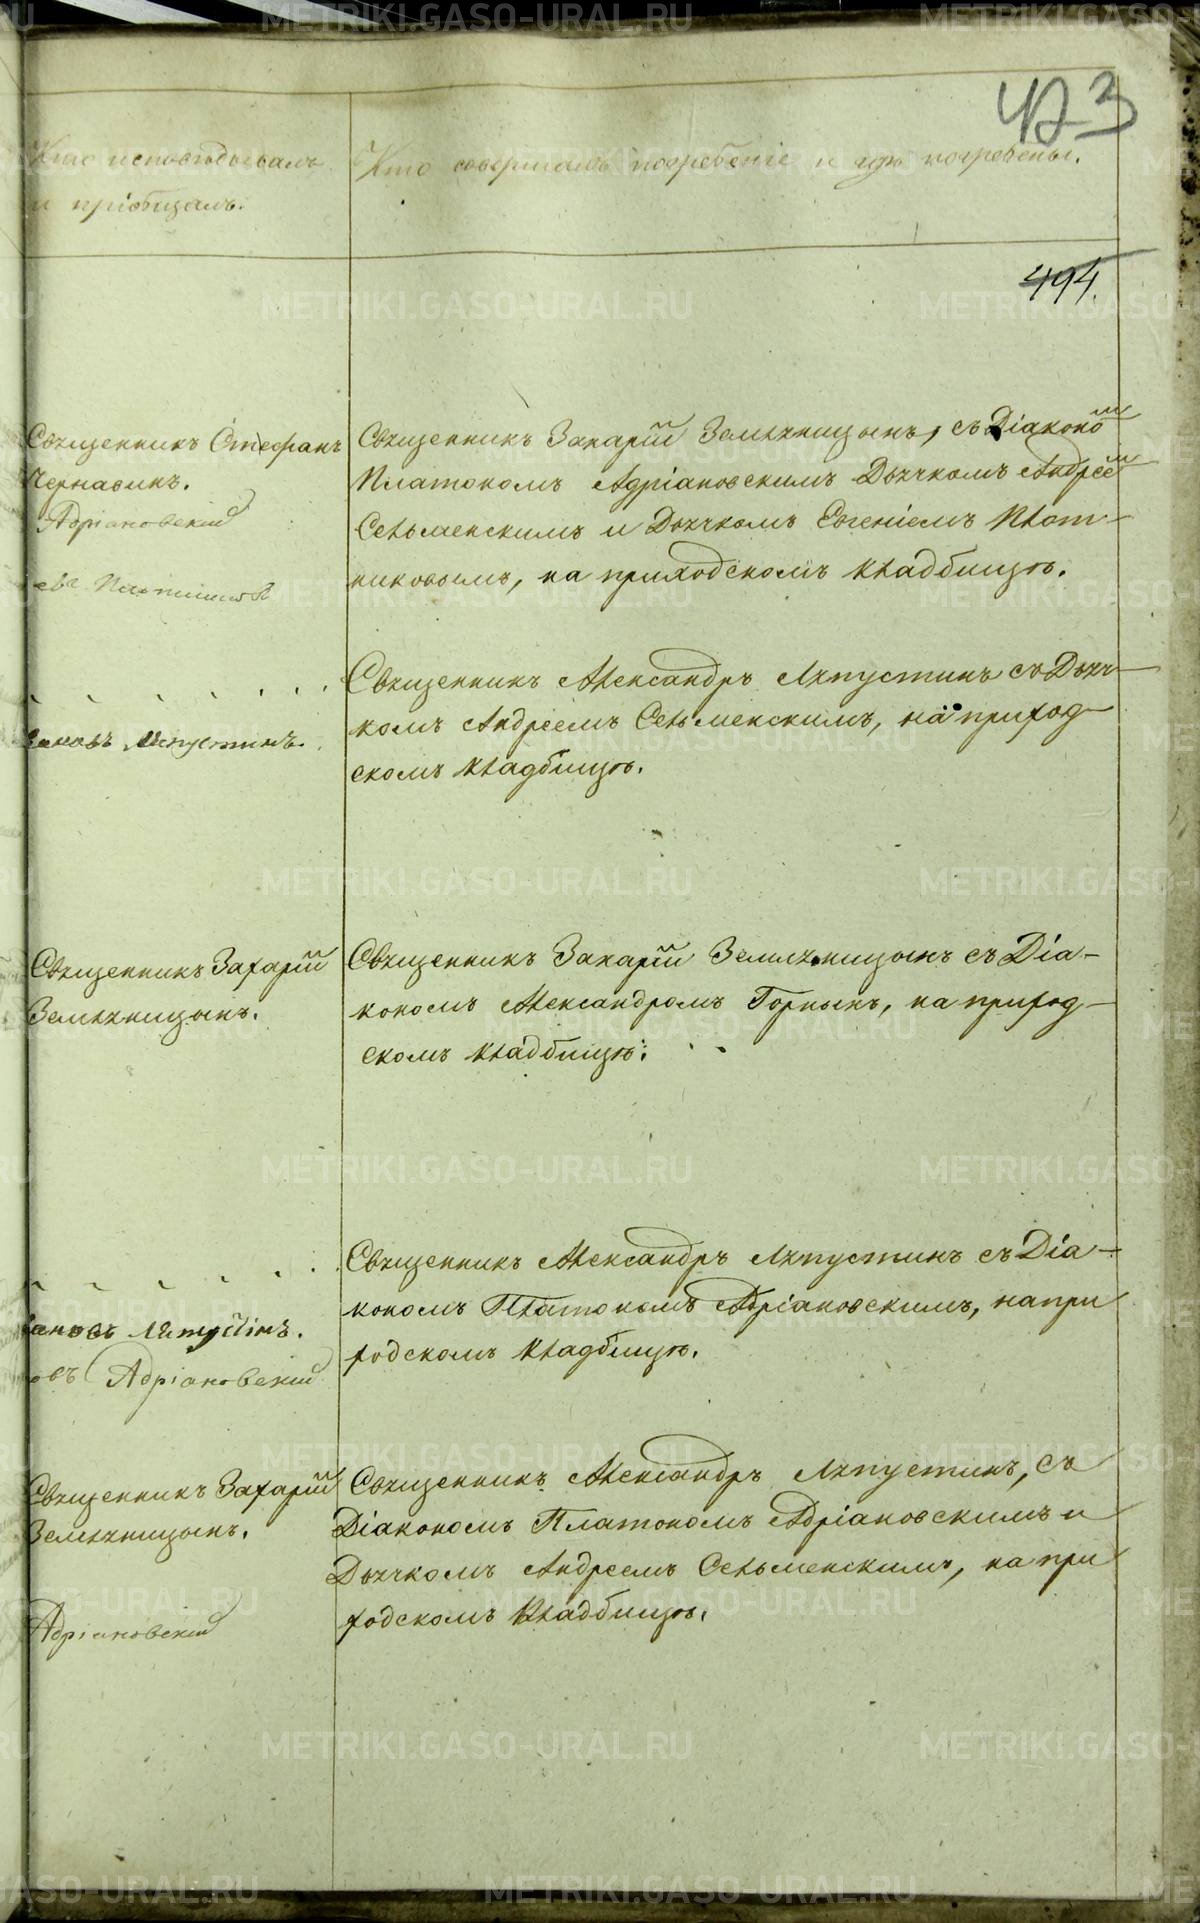 423
Кто исповѣдывалъ
и пріобщалъ.
Кто совершалъ погребеніе и гдѣ погребены.
494.
Священникъ Стефанъ
Чернавинъ.
Адріановскій
Священникъ Захарій Земляницынъ, съ Діаконо͞м
Платономъ Адріановскимъ Дьячкомъ Андрее͞м
Сельменскимъ и Дьячкомъ Евгеніемъ Плот-
никовымъ, на приходскомъ кладбищѣ.
Священникъ Александръ Ляпустинъ съ Дьяч-
комъ Андреемъ Сельменскимъ, на приход-
скомъ кладбищѣ.
Ляпустинъ.
Священникъ Захарій
Земляницынъ.
Священникъ Захарій Земляницынъ съ Діа-
кономъ Александромъ Горнынъ, на приход-
скомъ кладбищѣ.
Священникъ Александръ Ляпустинъ съ Діа-
кономъ Платономъ Адріановскимъ, на при
ходскомъ кладбищѣ.
Ляпустинъ.
овъ Адріановскій
Священникъ Захарій
Земляницынъ.
Адріановскій
Священникъ Александръ Ляпустинъ, съ
Діакономъ Платономъ Адріановскимъ и
Дьячкомъ Андреемъ Сельменскимъ, на при
ходскомъ кладбищѣ.
METRIKI.GASO-URAL.RU